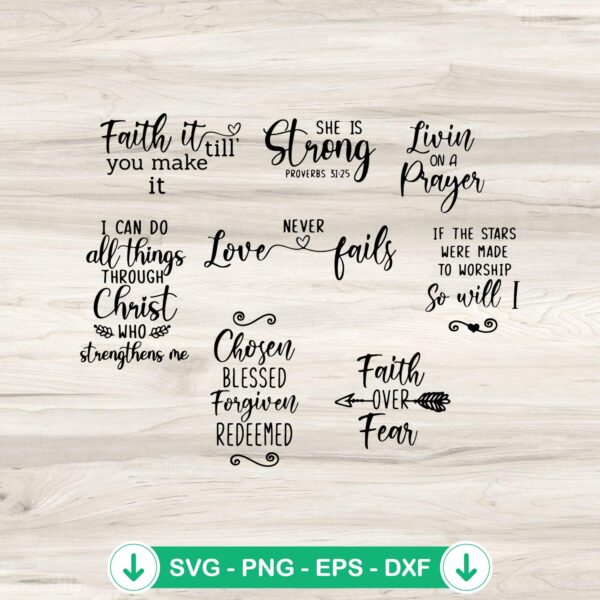 Faith it till'
you make
it
SHE IS
Strong
PROVERBS 31:25
Livin
ON A
Prayer
I CAN DO
all things
THROUGH
Christ
WHO
strengthens me
NEVER
Love fails
IF THE STARS
WERE MADE
TO WORSHIP
So will I
Chosen
BLESSED
Forgiven
REDEEMED
Faith
OVER
Fear
SVG - PNG - EPS - DXF